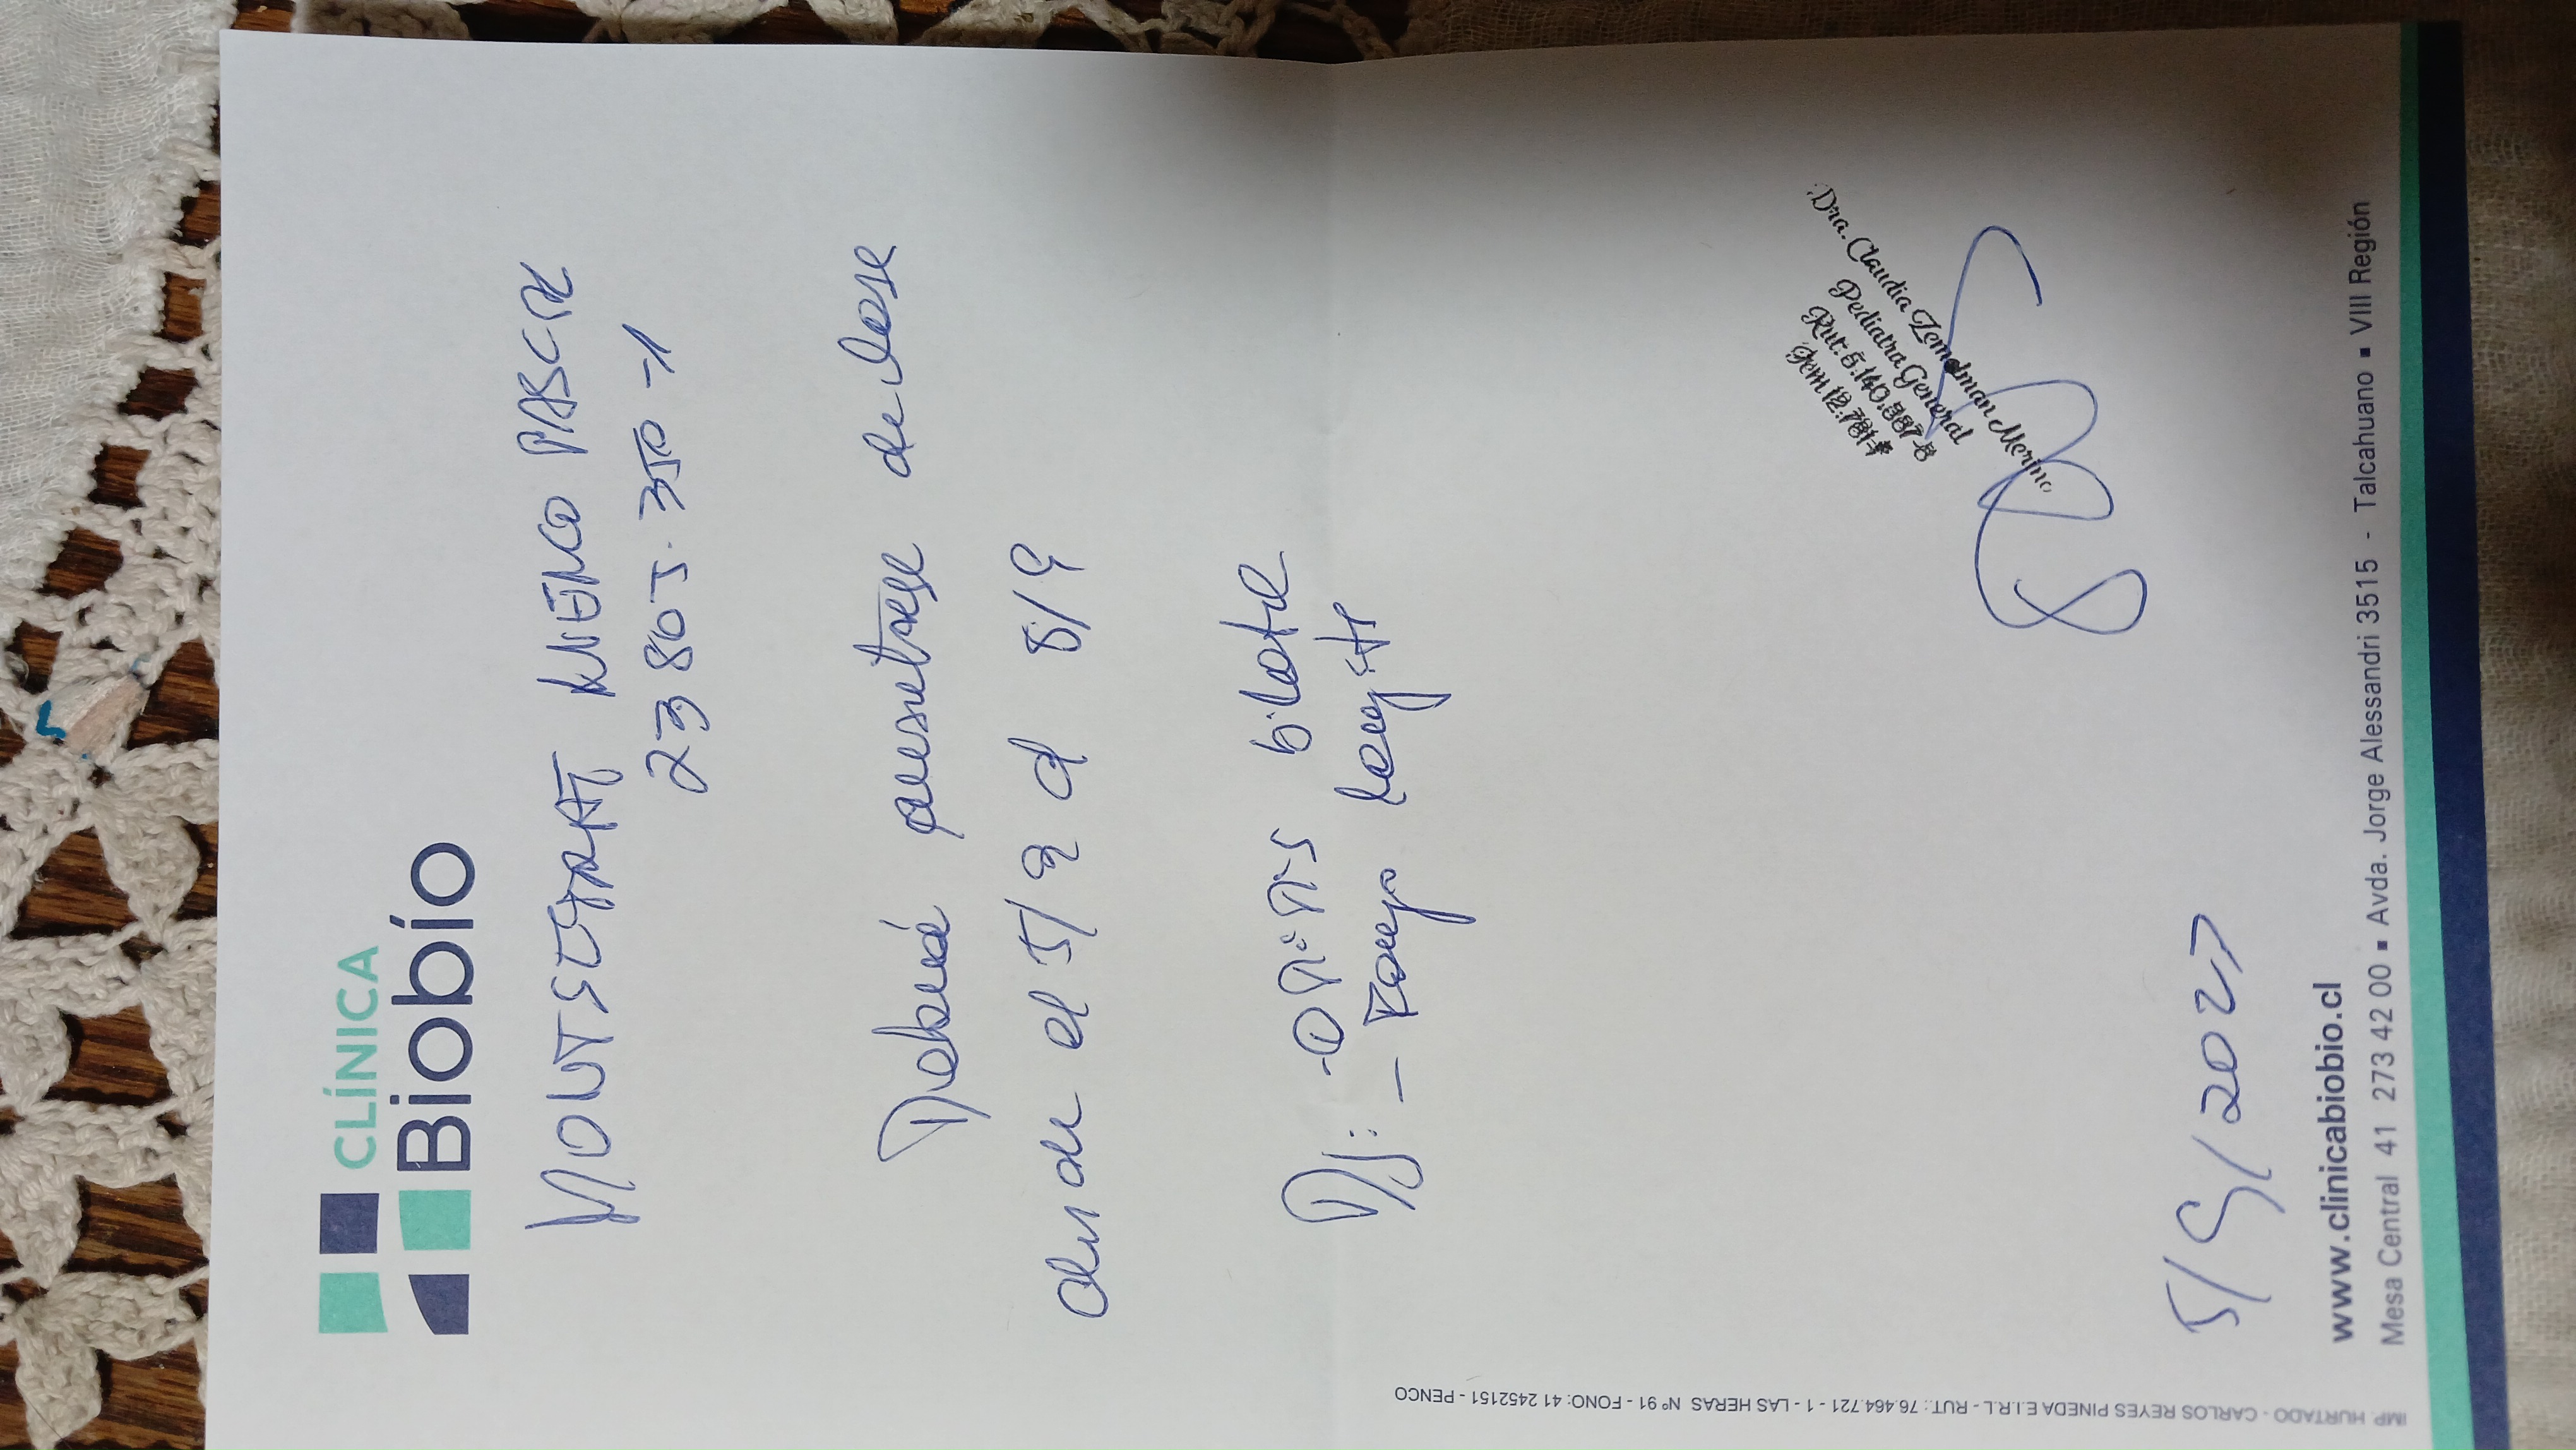 CLÍNICA
Biobío
MONTSERRAT KNEMO
23805.350-1
Deberá ausentarse de clase
desde el 5/9 al 8/9
D: - OTITIS bilate
- Faringo
5/9/202
Dra. Claudia Zemelman Merino
Pediatra General
Rut:
www.clinicabiobio.cl
Mesa Central 41 273 42 00 ▪ Avda. Jorge Alessandri 3515 - Talcahuano ▪ VIII Región
IMP. HURTADO - CARLOS REYES PINEDA E.I.R.L - RUT.: 76.464.721 - 1 - LAS HERAS Nº 91 - FONO: 41 2452151 - PENCO